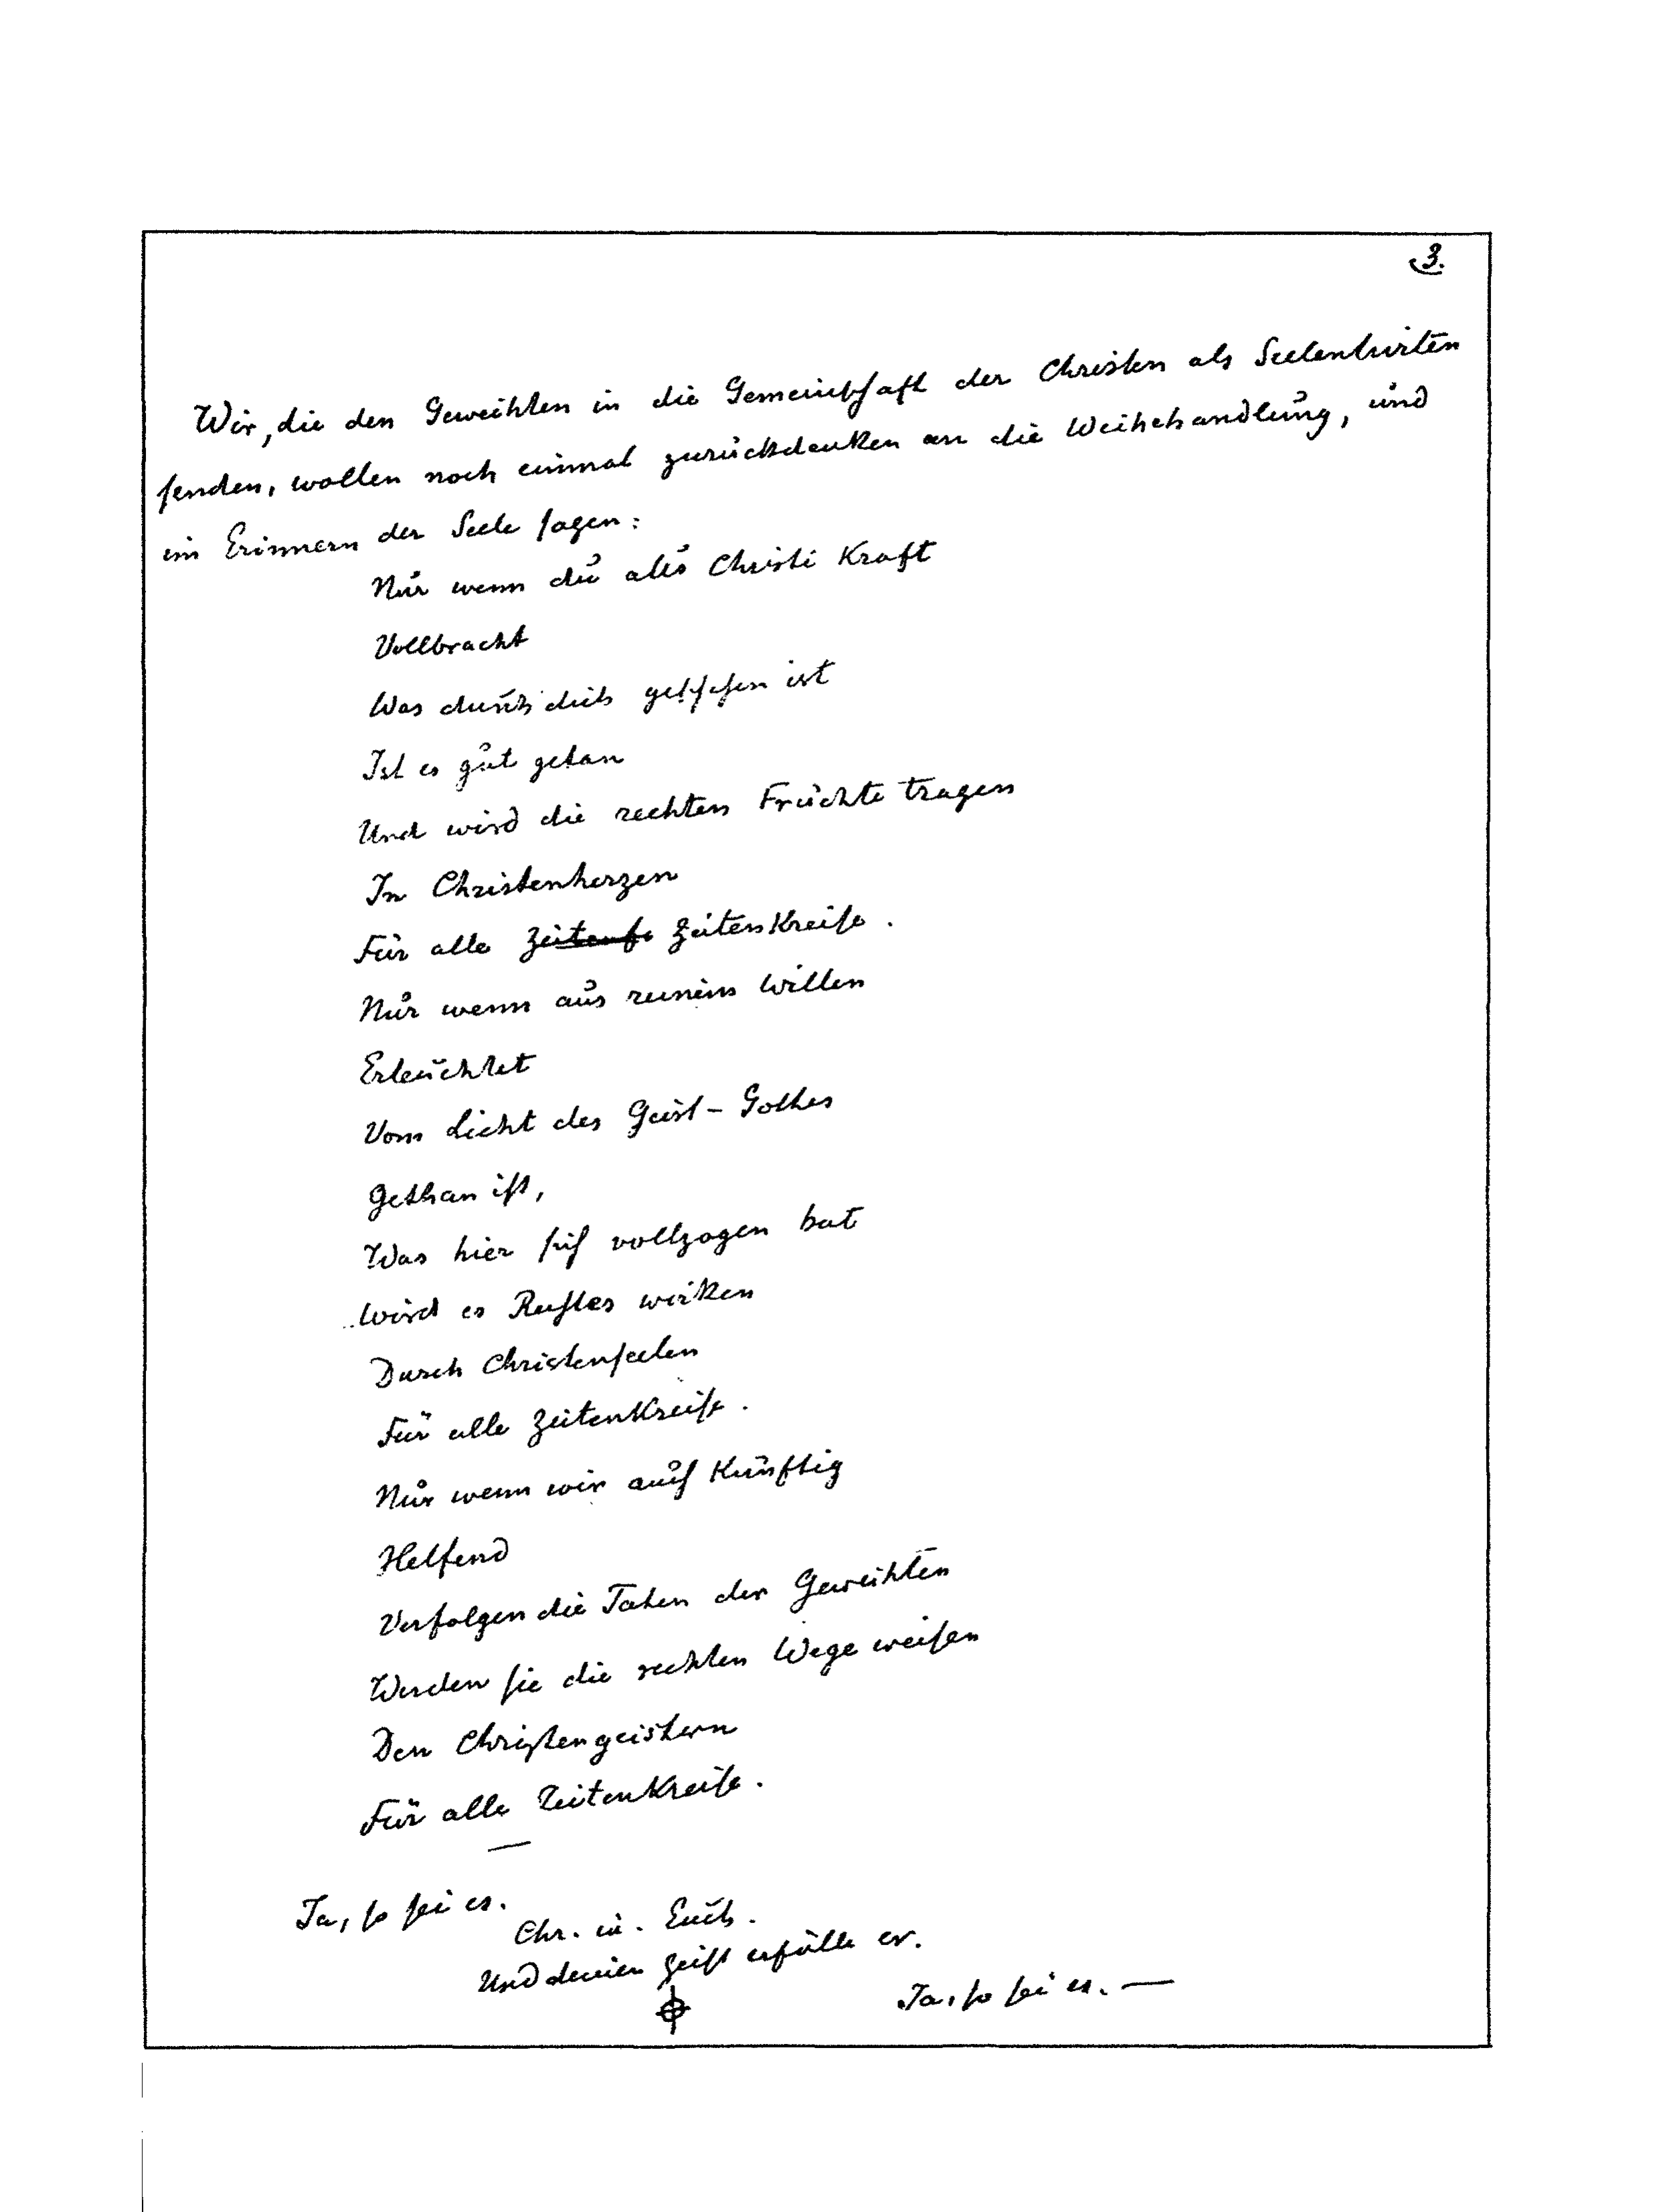 3.
Wir, die den Geweihten in die Gemeinschaft der Christen als Seelenhirten
senden, wollen noch einmal zurückdenken an die Weihehandlung, und
im Erinnern der Seele sagen:
Nur wenn du als Christi Kraft
Vollbracht
Was durch dich geschehen ist
Ist es gut getan
Und wird die rechten Früchte tragen
In Christenherzen
Für alle Zeitenkreise.
Nur wenn aus reinem Willen
Erleuchtet
Vom Licht des Geist-Gottes
Gethan ist,
Was hier sich vollzogen hat
Wird es Rechtes wirken
Durch Christenseelen
Für alle Zeitenkreise.
Nur wenn wir auch künftig
Helfend
Verfolgen die Taten der Geweihten
Werden sie die rechten Wege weisen
Den Christengeistern
Für alle Zeitenkreise.
Ja, so sei es.
Chr. in. Euch.
Und deinen Geist erfülle er.
Ja, so sei es. —